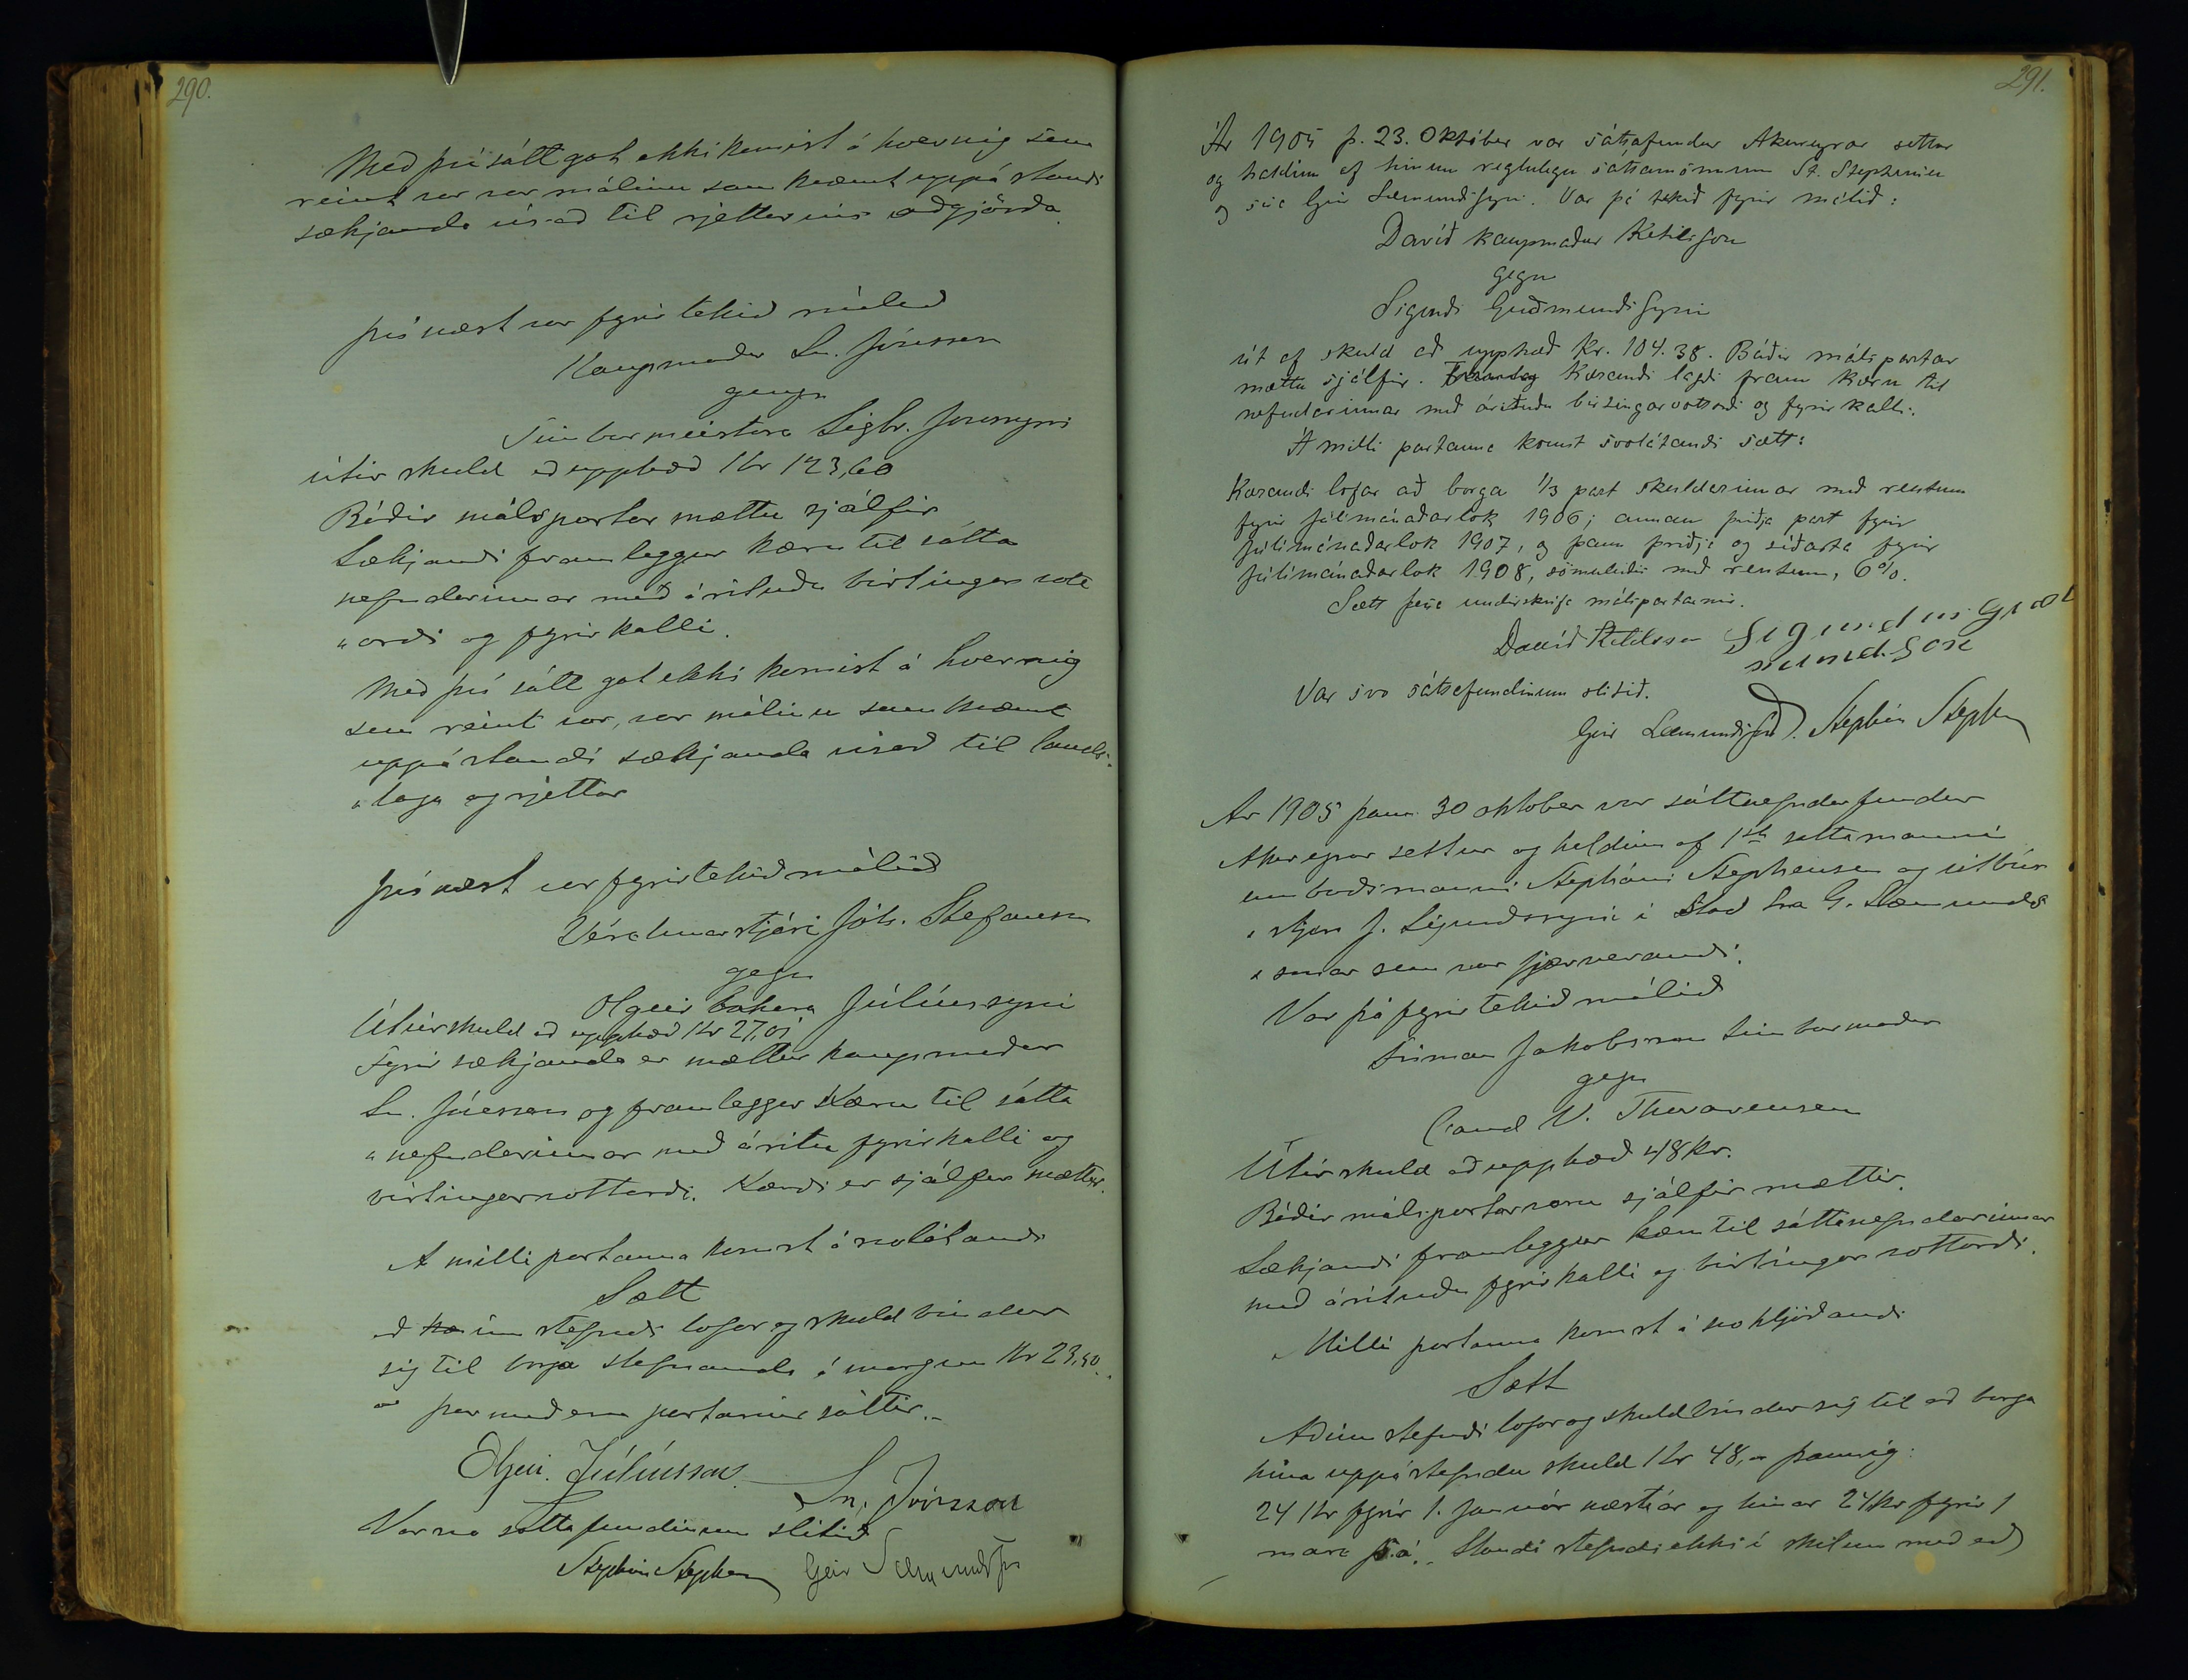 290.
Með því sátt gat ekki komist á hvernig sem
reint var var málinu sam kvæmt uppá standi
sækjanda vísað til rjettarins aðgjörða.
Því næst var fyrir tekið málið
Kaupmaður Sn. Jónsson
gengn
Timburmeistara Sigtr. Jónssyni
útúr skuld að upphæð Kr 123,60
Báðir málspartar mættu sjálfir
Sækjandi framleggur kæru til sátta
nefndarinnar með árituðu birtingar vott
„orði og fyrirkalli.
Með því sátt gat ekki komist á hvernig
sem reint var, var málinu sam kvæmt
uppástandi sækjanda vísað til lands„
„laga og rjettar
Því næst var fyrirtekið málið
Verslunarstjóri Jóh. Stefansson
gegn
Olgeir bakara Júlíussyni
Útúr skuld að upphæð Kr 27,01
Fyrir sækjanda er mættur kaupmaður
Sn. Jónsson og framleggur Kæru til sátta
„nefndarinnar með áritu fyrirkalli og
birtingarvottorði. Kærði er sjálfur mættur.
A milli partanna komst á svolátandi
Sætt
að hæ inn stefndi lofar og skuld bindur
sig til borga stefnanda á morgun Kr 23,50..
„ þar með eru partarnir sáttir.-
Olgeir. Júlíusson.
Sn, Jónsson
Var svo sáttafundinum slitið
Stephán Stephensen Geir Sæmundsson
291.
Ár 1905 þ. 23. Október var sáttafundur Akureyrar settur
og haldinn af hinum reglulegu sáttamönnum St. Stephensen
og séra Geir Sæmundssyni. Var þá tekið fyrir málið:
Davíð kaupmaður Ketilsson
gegn
Sigurði Guðmundssyni
út af skuld að upphæð Kr. 104.38. Báðir málspartar
mættu sjálfir. Kærandi lagði fram kæru til
nefndarinnar með árituðu birtingarvottorði og fyrirkalli.
Á milli partanna komst svolátandi sætt:
Kærandi lofar að borga 1/3 part skuldarinnar með rentum
fyrir júlímánaðarlok 1906; annan þriðja part fyrir
júlímánaðarlok 1907, og þann þriðja og síðasta fyrir
júlímánaðarlok 1908, sömuleiðis með rentum, 6%.
Sætt þessa undirskrifa málspartarnir.
Davíð Ketilsson Sigurður Guð
mundsson
Var svo sáttafundinum slitið.
Geir Sæmundsson. Stephán Stephensen
Ar 1905 þann 30 oktober var sáttnefndarfundur
Akureyrar settur og haldinn af 1sta sattamanni
umboðsmanni Stepháni Stephensen og útbús
„stjóra J. Sigurðssyni í stað sra G. Sæmunds
„sonar sem var fjærverandi.
Var þá fyrir tekið málið
Tríman Jakobsson timburmaður
gegn
Cand V. Thorarensen
Útúr skuld að upphæð 48 Kr.
Báðir málspartar voru sjálfir mættir.
Sækjandi framleggur kæru til sáttanefndarinnar
með árituðu fyrirkalli og birtingar vottorði.
„Milli partanna komst á svohljóðandi
Sætt
Að inn stefndi lofar og skuldbindur sig til að borga
hina uppástefndu skuld Kr 48,„ þannig:
24 Kr fyrir 1. januar næstkar og hinar 24 Kr fyrir 1
mars s.á.. Standi stefndi ekki í skilum með að